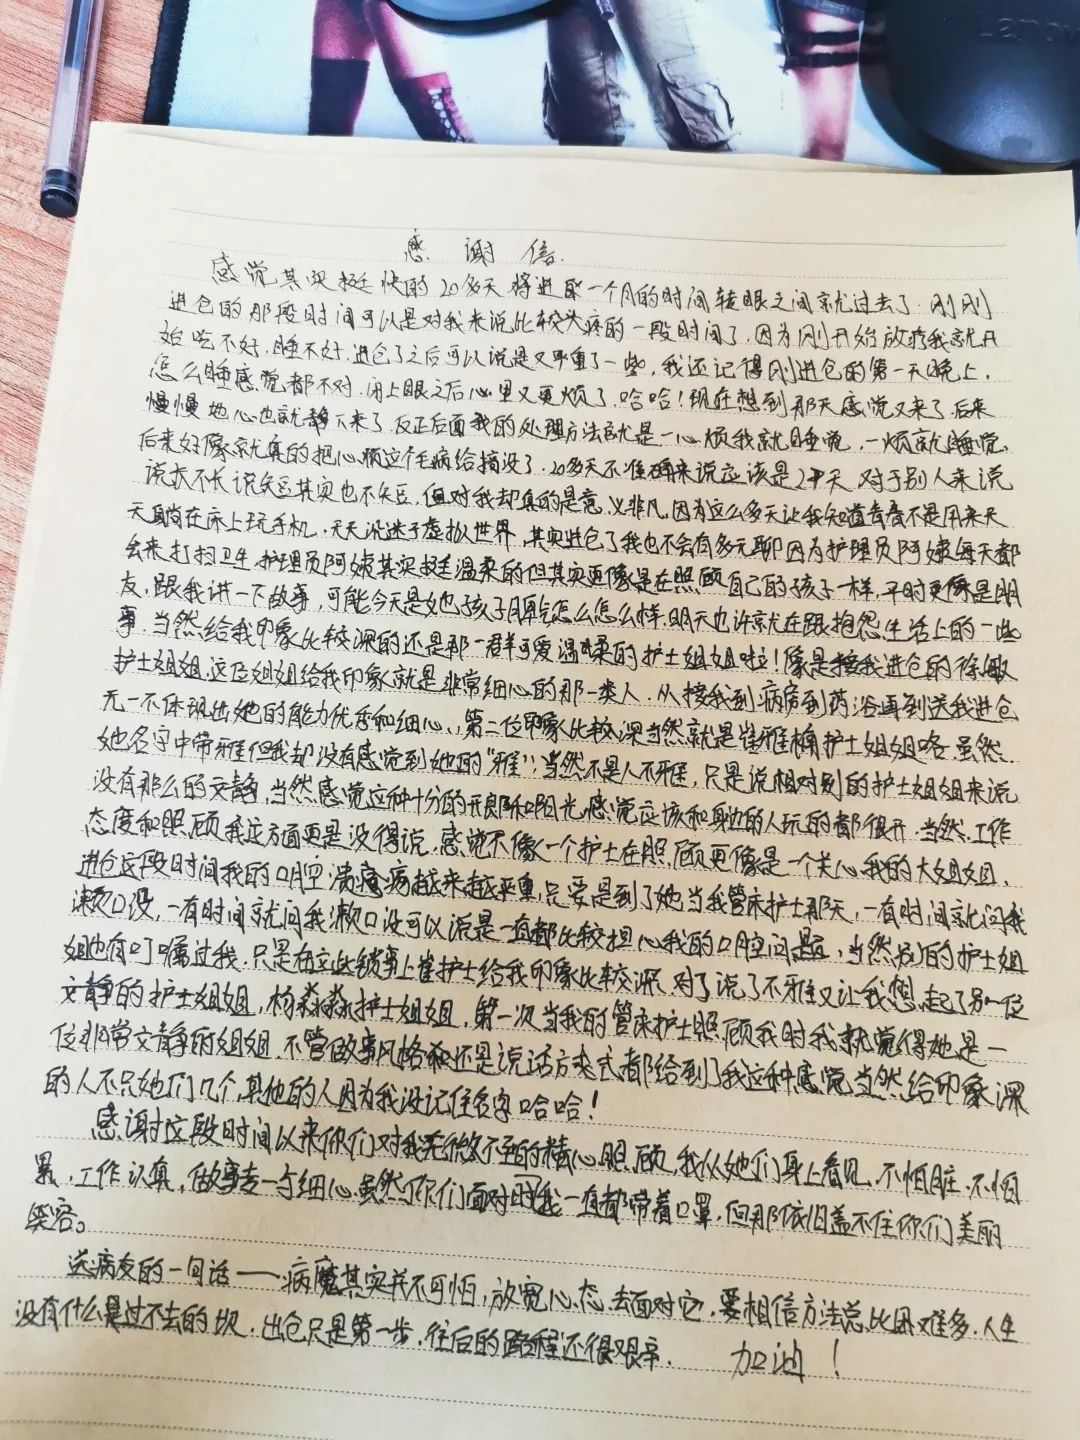 Lenovo
感谢信.
感觉其实挺快的20多天将近一个月的时间转眼之间就过去了.刚刚
进仓的那段时间可以是对我来说比较头疼的一段时间了,因为刚开始放疗我就开
始吃不好.睡不好.进仓了之后可以说是又严重了一些,我还记得刚进仓的第一天晚上.
怎么睡感觉都不对.闭上眼之后心里又更烦了.哈哈!现在想到那天感觉又来了.后来
慢慢地心也就静下来了.反正后面我的处理方法就是一心烦我就睡觉,一烦就睡觉.
后来好像就真的把心烦这个毛病给搞没了.20多天不准确来说应该是27天.对于别人来说
说长不长说短其实也不短.但对我却真的是意义非凡.因为这么多天让我知道青春不是用来天
天躺在床上玩手机,天天沉迷于虚拟世界,其实进仓了我也不会有多无聊因为护理员阿姨每天都
会来打扫卫生,护理员阿姨其实挺温柔的但其实更像是在照顾自己的孩子一样,平时更像是朋
友,跟我讲一下故事,可能今天是她孩子怎么怎么样.明天也许就在跟抱怨生活上的一些
事.当然给我印象比较深的还是那一群可爱温柔的护士姐姐啦!像是接我进仓的徐敏
护士姐姐.这位姐姐给我印象就是非常细心的那一类人.从接我到病房到药浴再到送我进仓
无一不体现出她的能力优秀和细心,.第二位印象比较深当然就是崔雅楠护士姐姐咯.虽然
她名字中带雅但我却没有感觉到她的"雅".当然不是人不雅,只是说相对别的护士姐姐来说
没有那么的文静.当然感觉这种十分的开朗和阳光.感觉应该和身边的人玩的都很开.当然.工作
态度和照顾我这方面更是没得说.感觉不像一个护士在照顾更像是一个关心我的大姐姐.
进仓这段时间我的口腔溃疡病越来越严重,只要是到了她当我管床护士那天,一有时间就问我
漱口没,一有时间就问我漱口没可以说是一直都比较担心我的口腔问题,当然别的护士姐
姐也有叮嘱过我.只是在这些锁事上崔护士给我印象比较深.对了说了不雅又让我想起了另一位
文静的护士姐姐,杨淼淼护士姐姐,第一次当我的管床护士照顾我时我就觉得她是一
位非常文静的姐姐.不管做事风格和还是说话方式都给到我这种感觉当然给印象深
的人不只她们几个,其他的人因为我没记住名字哈哈!
感谢这段时间以来你们对我无微不至的精心照顾,我从她们身上看见.不怕脏.不怕
累.工作认真,做事专一与细心.虽然你们面对的我一直都带着口罩,但那依旧盖不住你们美丽
笑容。
送病友的一句话——病魔其实并不可怕,放宽心态.去面对它.要相信方法总比困难多.人生
没有什么是过不去的坎.出仓只是第一步.往后的路程还很艰辛. 加油!